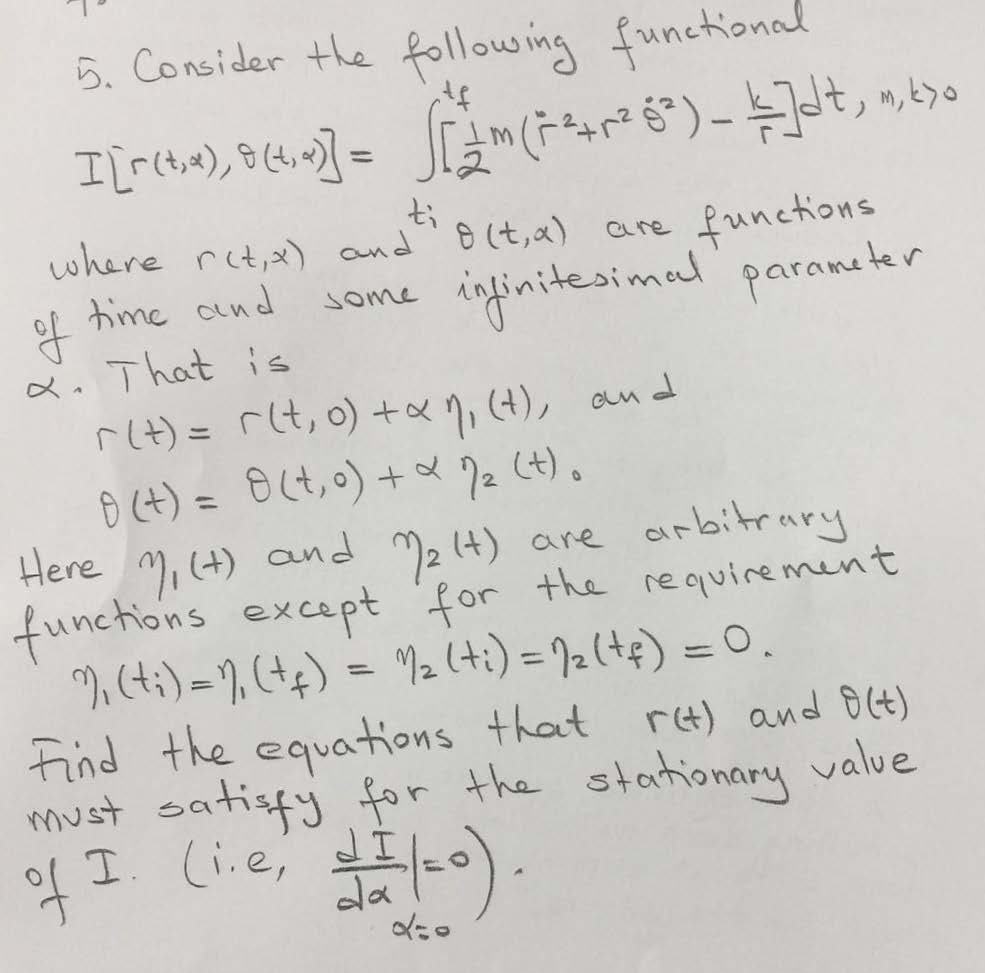 5. Consider the following functional
I[r(t,α), θ(t,α)] = ∫_{ti}^{tf} [1/2 m(ṙ² + r² θ̇²) - k/r] dt, m, k>0
where r(t,α) and θ(t,α) are functions
of time and some infinitesimal parameter
α. That is
r(t) = r(t,0) + α η₁(t), and
θ(t) = θ(t,0) + α η₂(t).
Here η₁(t) and η₂(t) are arbitrary
functions except for the requirement
η₁(ti) = η₁(tf) = η₂(ti) = η₂(tf) = 0.
Find the equations that r(t) and θ(t)
must satisfy for the stationary value
of I. (i.e, dI/dα|_{α=0} = 0).